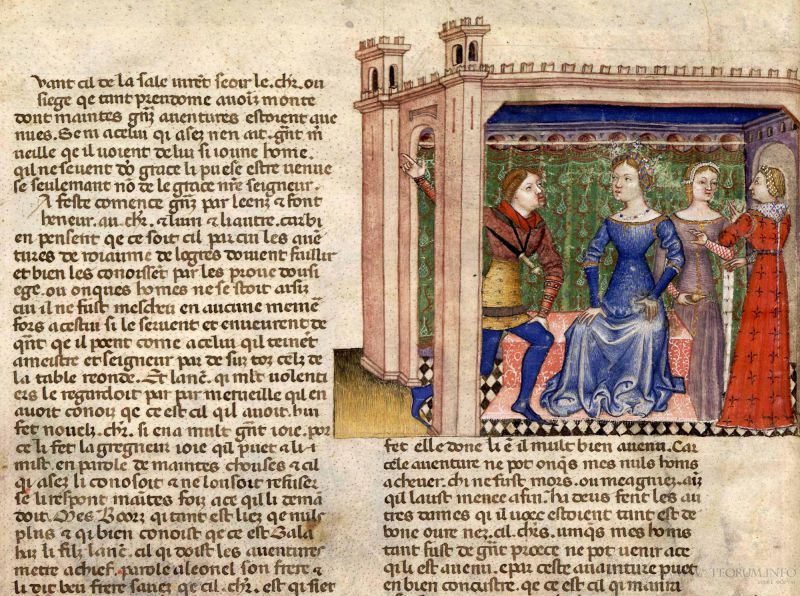 Vant cil de la sale virēt seoir le. chr̄. ou
siege qe tant preudome avoiēt monte
dont maintes gn̄z aventures estoient ave
nues. Se m a celui qi asez nen ait. gn̄t m̄
veille qe il voient de lui si joune home.
qil ne sevent dō grace li puese estre venue
se seulemant nō de le grace nr̄e seigneur.
A feste comence gn̄z par leenz & font
heneur. au. chr̄. & lun & li autre. car bi
en pensent qe ce soit cil par cui les avē
tures de roiaume de logres doivent faillir
et bien les conoissēt par les prove dou si
ege. ou onques homes ne se
cui il ne fust mescheu en aucune memē
fors a cestui si le servent et enneurent de
qn̄t qe il poent come a celui qil teinēt
a mestre et seigneur par de sur toz celz de
la table reonde. Et lanc̄. qi mlt volenti
ers le regardoit par par merveille qil en
avoit conoiz qe ce est cil qil avoit. hui
fet novelz. chr̄. si en a mult gn̄t ioie. por
ce li fet la gregneur ioie qil puet & li i
mist. en parole de maintes chouses & cil
qi asez li conosoit & ne lou soit refuser
se li respont maītes foiz a ce qil li dema
doit. Mes Boorz qi tant est liez qe nuls
plus & qi bien conoist qe ce est Gala
haz li filz lanc̄. cil qi doist les aventures
metre a chief. parole a leonel son frere &
li dit beu frere savez qe cil. chr̄. est qi siet
fet elle donc li ē il mult bien avenu. Car
cele aventure ne pot onqs mes nuls homs
achever. chi ne fust mors. ou meagniez. aīz
qil laust menee a fin. hi deus fent les au
tres dames qi il voec estoient tant est de
bone oure nez. cil. chrs. umqs mes homs
tant fust de gn̄t proece ne pot venir a ce
qi li est avenu. e par ceste avainture puet
en bien conoustre. qe ce est cil qi
TEORUM.INFO